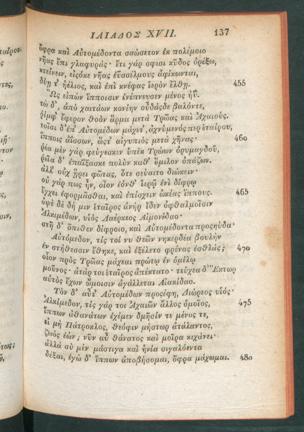 ΙΛΙΑΔΟΣ XVII. 137
ὄφρα καὶ Αὐτομέδοντα σαώσετον ἐκ πολέμοιο
νῆας ἔπι γλαφυράς· ἔτι γάρ σφισι κῦδος ὀρέξω,
κτείνειν, εἰσόκε νῆας ἐϋσσέλμους ἀφίκωνται,
δύῃ τ' ἠέλιος, καὶ ἐπὶ κνέφας ἱερὸν ἔλθῃ. 455
Ὣς εἰπὼν ἵπποισιν ἐνέπνευσεν μένος ἠΰ.
τὼ δ', ἀπὸ χαιτάων κονίην οὖδάσδε βαλόντε,
ῥίμφ' ἔφερον θοὸν ἅρμα μετὰ Τρῶας καὶ Ἀχαιούς.
τοῖσι δ' ἐπ' Αὐτομέδων μάχετ', ἀχνύμενός περ ἑταίρου,
ἵπποις ἀΐσσων, ὥστ' αἰγυπιὸς μετὰ χῆνας· 460
ῥεῖα μὲν γὰρ φεύγεσκεν ὑπὲκ Τρώων ὀρυμαγδοῦ,
ῥεῖα δ' ἐπαΐξασκε πολὺν καθ' ὅμιλον ὀπάζων.
ἀλλ' οὐχ ᾕρει φῶτας, ὅτε σεύαιτο διώκειν·
οὐ γάρ πως ἦν, οἷον ἐόνθ' ἱερῷ ἐνὶ δίφρῳ
ἔγχει ἐφορμᾶσθαι, καὶ ἐπίσχειν ὠκέας ἵππους. 465
ὀψὲ δὲ δή μιν ἑταῖρος ἀνὴρ ἴδεν ὀφθαλμοῖσιν
Ἀλκιμέδων, υἱὸς Λαέρκεος Αἱμονίδαο·
στῆ δ' ὄπιθεν δίφροιο, καὶ Αὐτομέδοντα προσηύδα·
Αὐτόμεδον, τίς τοί νυ θεῶν νηκερδέα βουλὴν
ἐν στήθεσσιν ἔθηκε, καὶ ἐξέλετο φρένας ἐσθλάς; 470
οἷον πρὸς Τρῶας μάχεαι πρώτῳ ἐν ὁμίλῳ
μοῦνος· ἀτάρ τοι ἑταῖρος ἀπέκτατο· τεύχεα δ' Ἕκτωρ
αὐτὸς ἔχων ὤμοισιν ἀγάλλεται Αἰακίδαο.
Τὸν δ' αὖτ' Αὐτομέδων προσέφη, Διώρεος υἱός·
Ἀλκίμεδον, τίς γάρ τοι Ἀχαιῶν ἄλλος ὁμοῖος, 475
ἵππων ἀθανάτων ἐχέμεν δμῆσίν τε μένος τε,
εἰ μὴ Πάτροκλος, θεόφιν μήστωρ ἀτάλαντος,
ζωὸς ἐών; νῦν αὖ θάνατος καὶ μοῖρα κιχάνει.
ἀλλὰ σὺ μὲν μάστιγα καὶ ἡνία σιγαλόεντα
δέξαι, ἐγὼ δ' ἵππων ἀποβήσομαι, ὄφρα μάχωμαι. 480